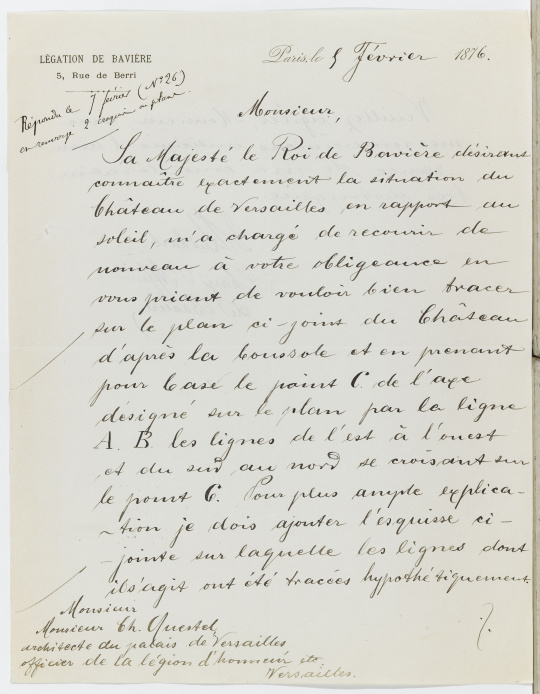 LÉGATION DE BAVIÈRE
5, Rue de Berri
Paris, le 5 Février 1876.
Répondu le 7 février (N° 26)
en renvoyé 2 croquis au plan
Monsieur,
Sa Majesté le Roi de Bavière désirant
connaître exactement la situation du
Château de Versailles en rapport au
soleil, m'a chargé de recourir de
nouveau à votre obligeance en
vous priant de vouloir bien tracer
sur le plan ci-joint du Château
d'après la boussole et en prenant
pour base le point C. de l'axe
désigné sur le plan par la ligne
A. B. les lignes de l'est à l'ouest
et du sud au nord se croisant sur
le point C. Pour plus ample explica-
-tion je dois ajouter l'esquisse ci-
-jointe sur laquelle les lignes dont
il s'agit ont été tracées hypothétiquement.
Monsieur
Monsieur Ch. Questel
architecte du palais de Versailles
officier de la légion d'honneur etc
Versailles.